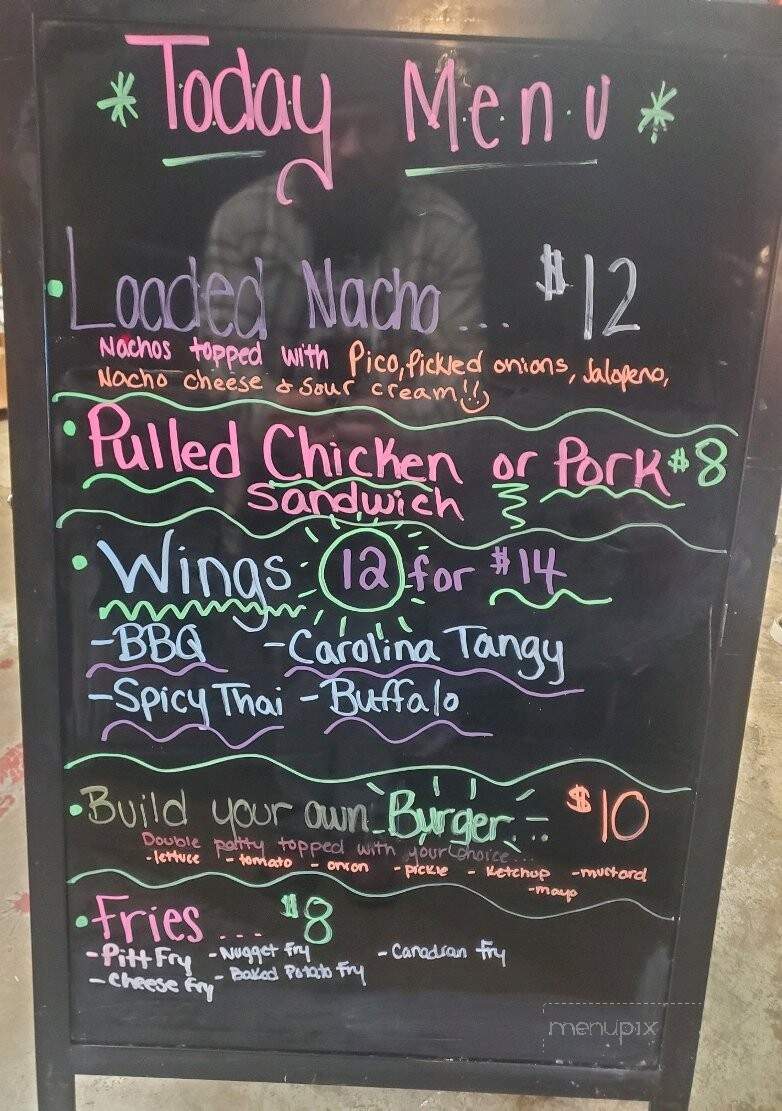 * Today Menu *
• Loaded Nacho ... $12
Nachos topped with Pico, Pickled onions, Jalapeno,
Nacho cheese & sour cream!!
• Pulled Chicken or Pork $8
Sandwich
• Wings 12 for $14
-BBQ -Carolina Tangy
-Spicy Thai -Buffalo
• Build your own Burger... $10
Double patty topped with your choice...
-lettuce -tomato -onion -pickle -Ketchup -mustard
-mayo
• Fries ... $8
-Pitt Fry -Nugget Fry -Canadian Fry
-Cheese Fry -Baked Potato Fry
menupix